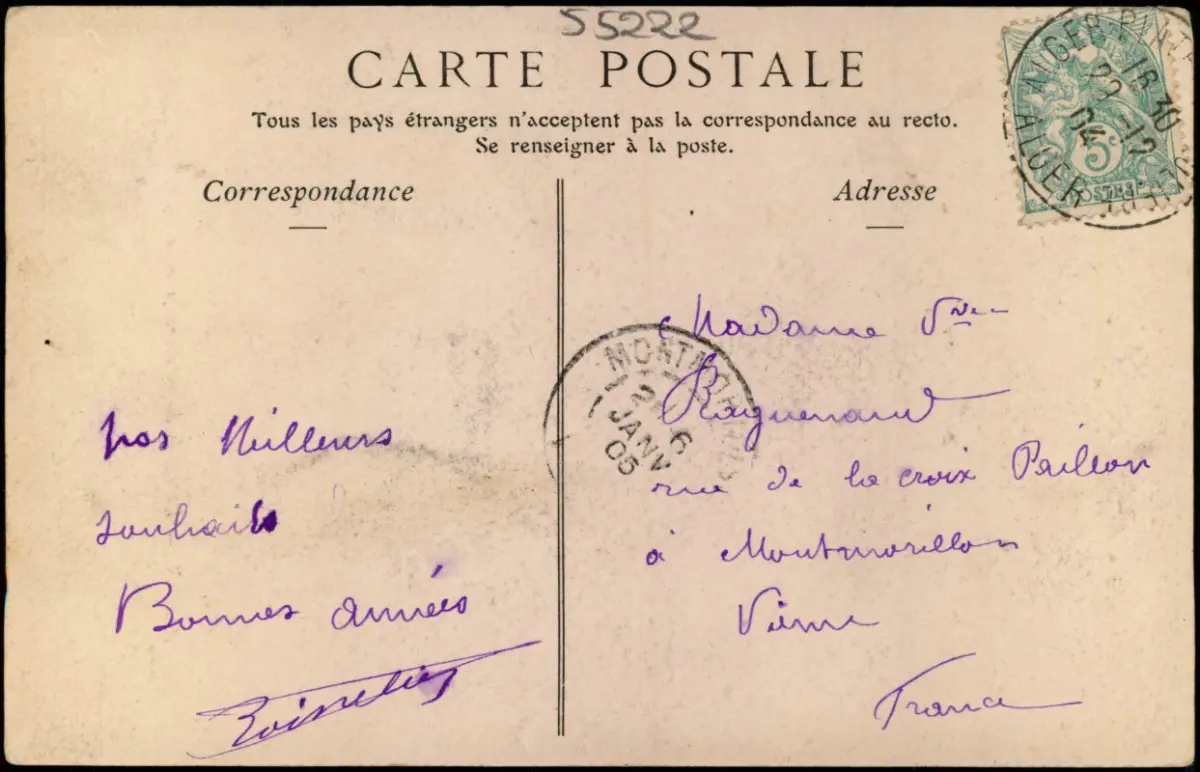 55222
CARTE POSTALE
Tous les pays étrangers n'acceptent pas la correspondance au recto.
Se renseigner à la poste.
Correspondance
Adresse
ALGER
16 30
-12
04
ALGER
5c
POSTES
nos Meilleurs
souhaits
Bonnes années
MONTMORILLON
2
6
JANV
05
Madame Vve
Raguenaud
rue de la croix Paillon
à Montmorillon
Vienne
France